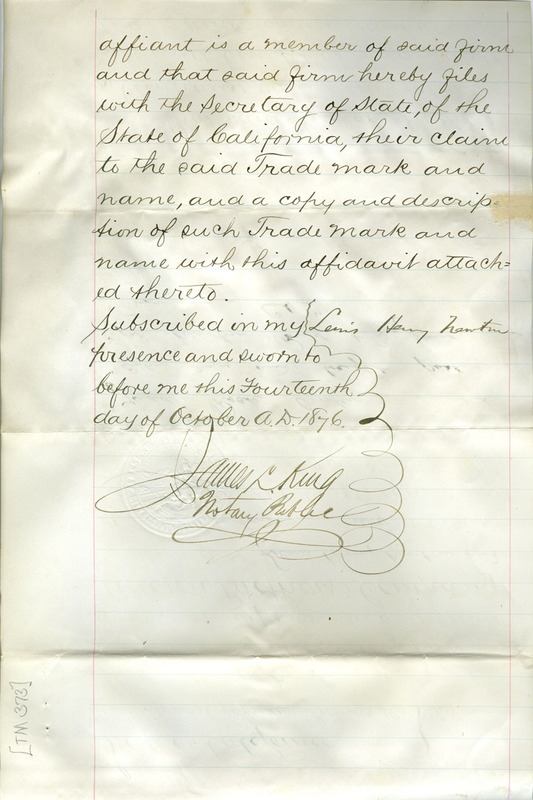 affiant is a member of said firm
and that said firm hereby files
with the Secretary of State, of the
State of California, their claim
to the said Trade mark and
name, and a copy and descrip=
tion of such Trade mark and
name with this affidavit attach=
ed thereto.
Subscribed in my Lewis Henry Newton
presence and sworn to
before me this Fourteenth
day of October A.D. 1876.
James L. King
Notary Public
[TM 373]